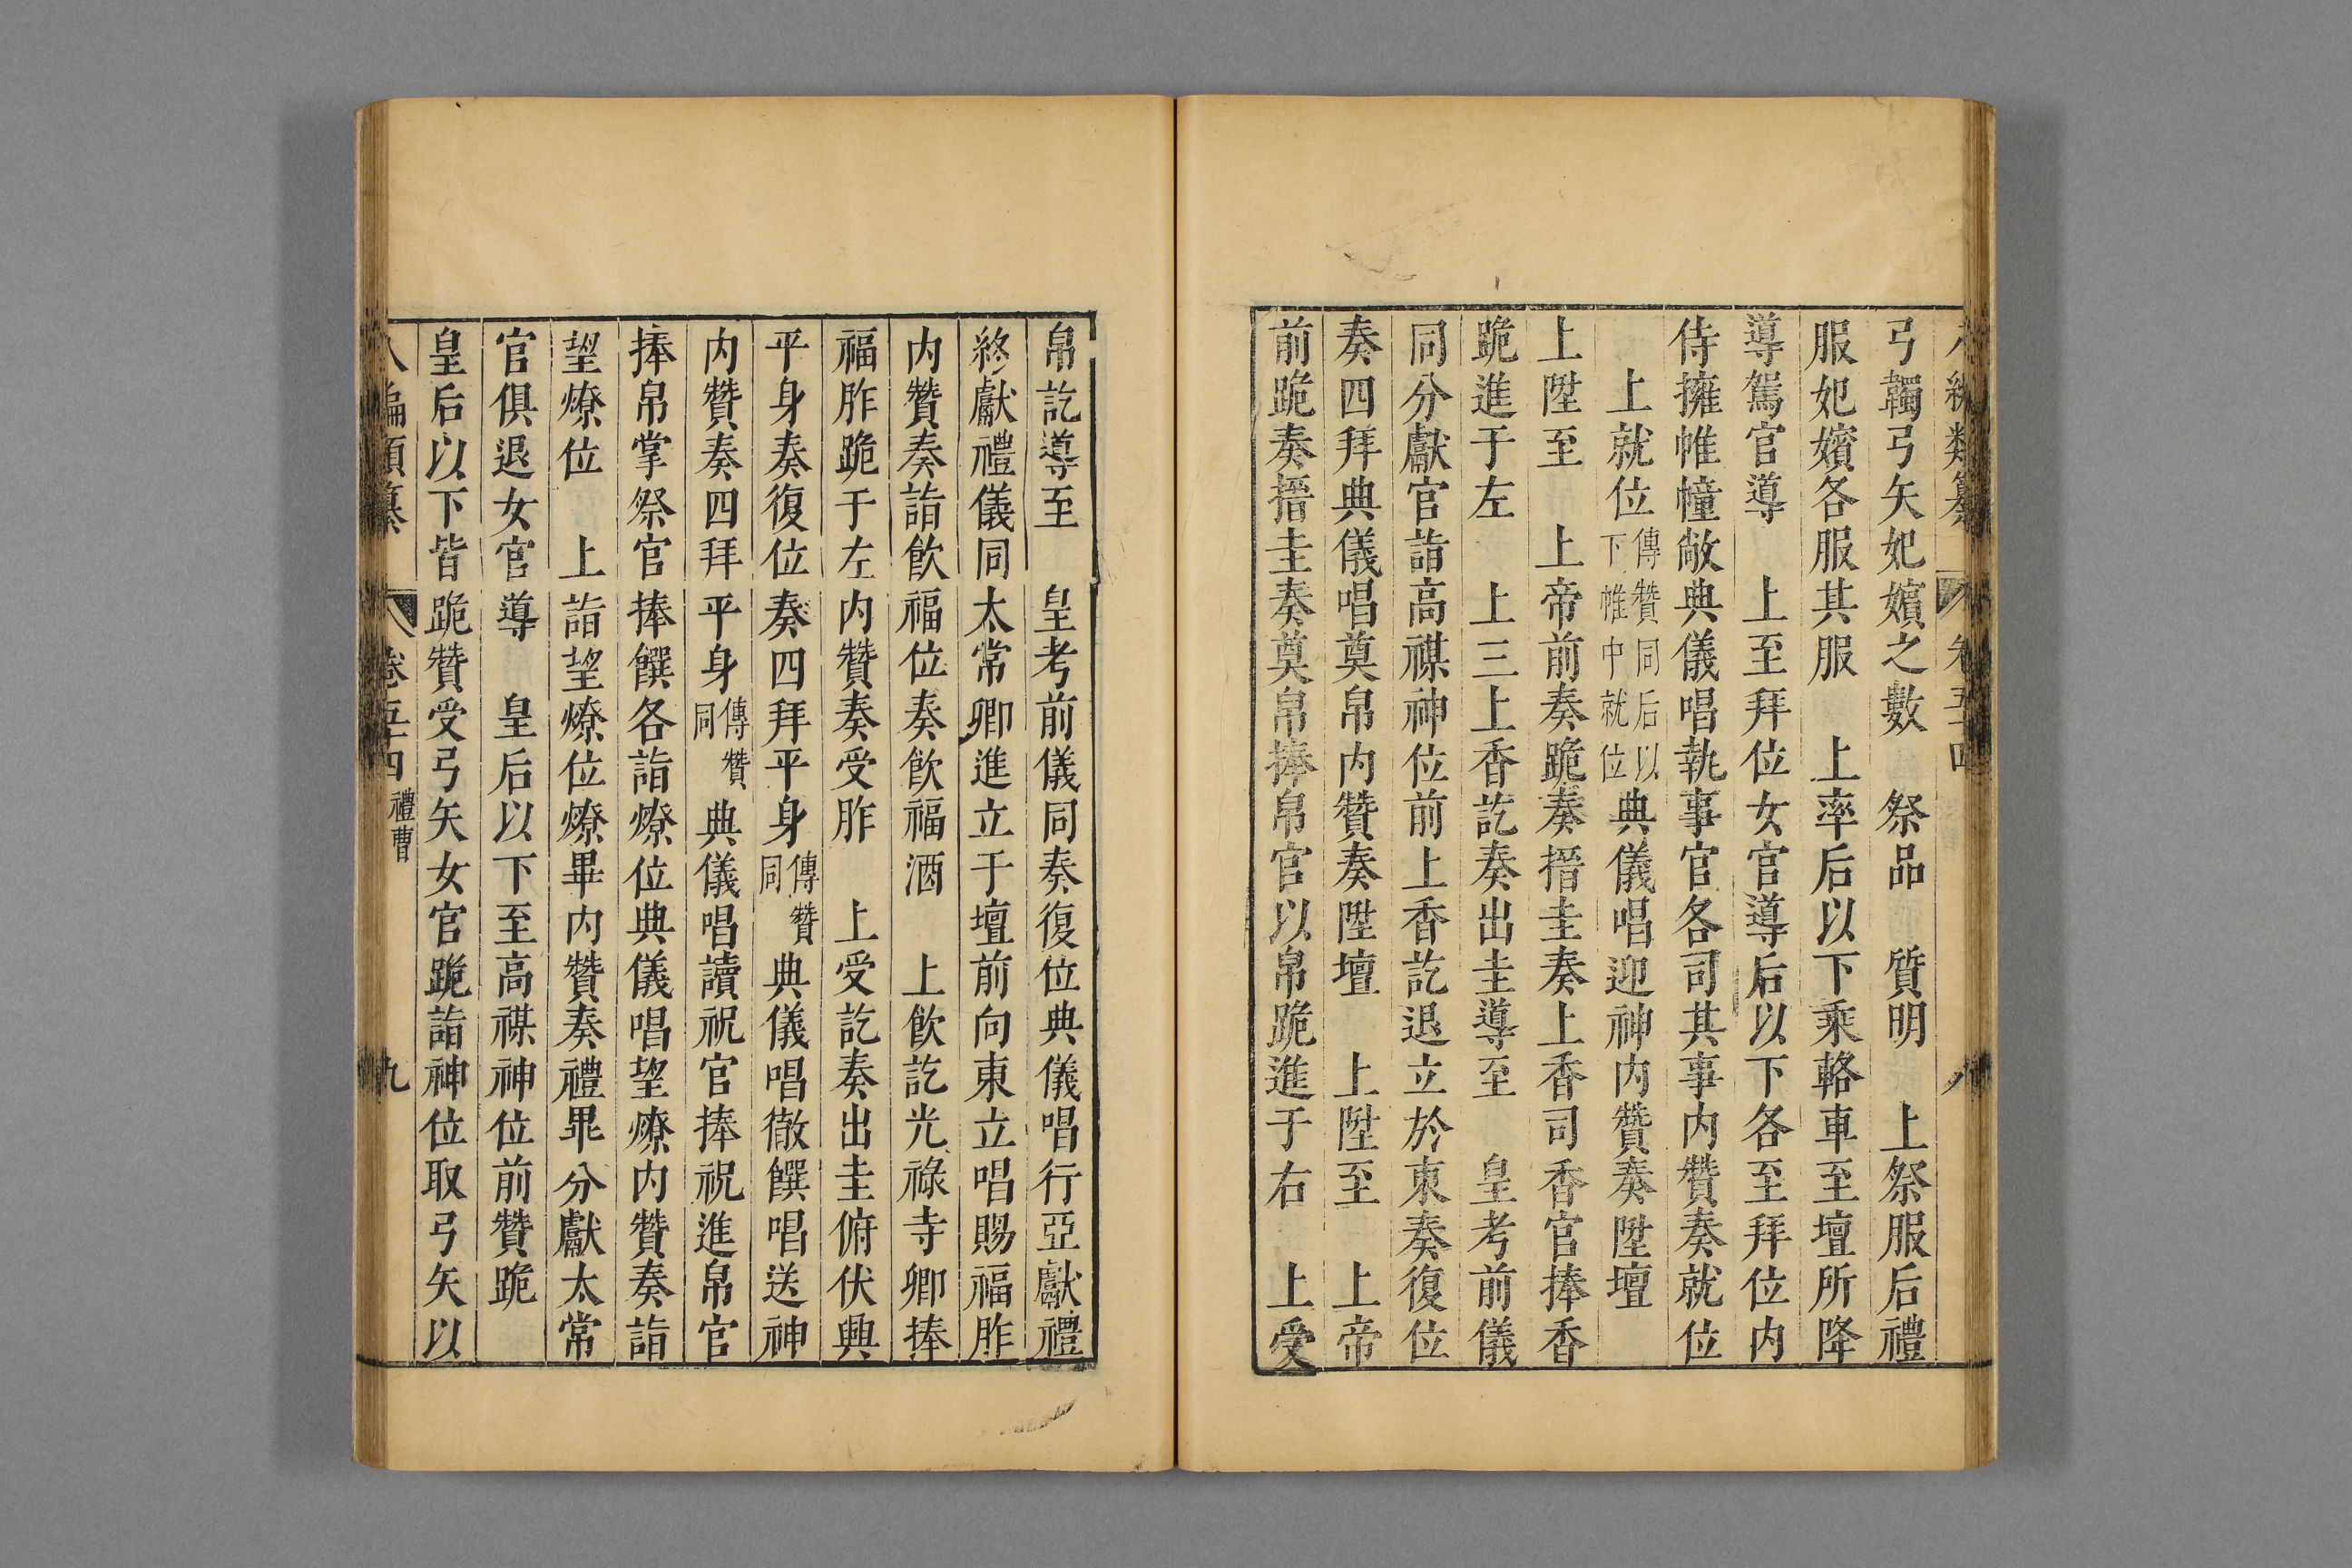 八編類纂 卷五十四 八
弓韣弓矢妃嬪之數　祭品　質明　上祭服后禮
服妃嬪各服其服　上率后以下乘輅車至壇所降
導駕官導　上至拜位女官導后以下各至拜位内
侍擁帷幢敞典儀唱執事官各司其事内贊奏就位
上就位傳贊同后以下帷中就位典儀唱迎神内贊奏陞壇
上陞至　上帝前奏跪奏搢圭奏上香司香官捧香
跪進于左　上三上香訖奏出圭導至　皇考前儀
同分獻官詣高禖神位前上香訖退立於東奏復位
奏四拜典儀唱奠帛内贊奏陞壇　上陞至　上帝
前跪奏搢圭奏奠帛捧帛官以帛跪進于右　上受
帛訖導至　皇考前儀同奏復位典儀唱行亞獻禮
終獻禮儀同太常卿進立于壇前向東立唱賜福胙
内贊奏詣飲福位奏飲福酒　上飲訖光祿寺卿捧
福胙跪于左内贊奏受胙　上受訖奏出圭俯伏興
平身奏復位奏四拜平身傳贊同典儀唱徹饌唱送神
内贊奏四拜平身傳贊同典儀唱讀祝官捧祝進帛官
捧帛掌祭官捧饌各詣燎位典儀唱望燎内贊奏詣
望燎位　上詣望燎位燎畢内贊奏禮畢分獻太常
官俱退女官導　皇后以下至高禖神位前贊跪
皇后以下皆跪贊受弓矢女官跪詣神位取弓矢以
八編類纂 卷五十四 禮曹 九